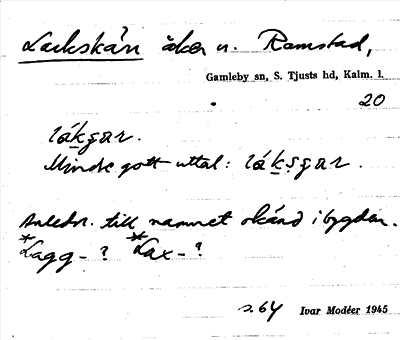 Lackskån åker n. Ramstad,
Gamleby sn, S. Tjusts hd, Kalm. l.
20
lákşar.
Mindre gott uttal: lákşşar.
Anledn. till namnet okänd i bygden.
*Lagg-? *Lax-?
s. 64 Ivar Modéer 1945